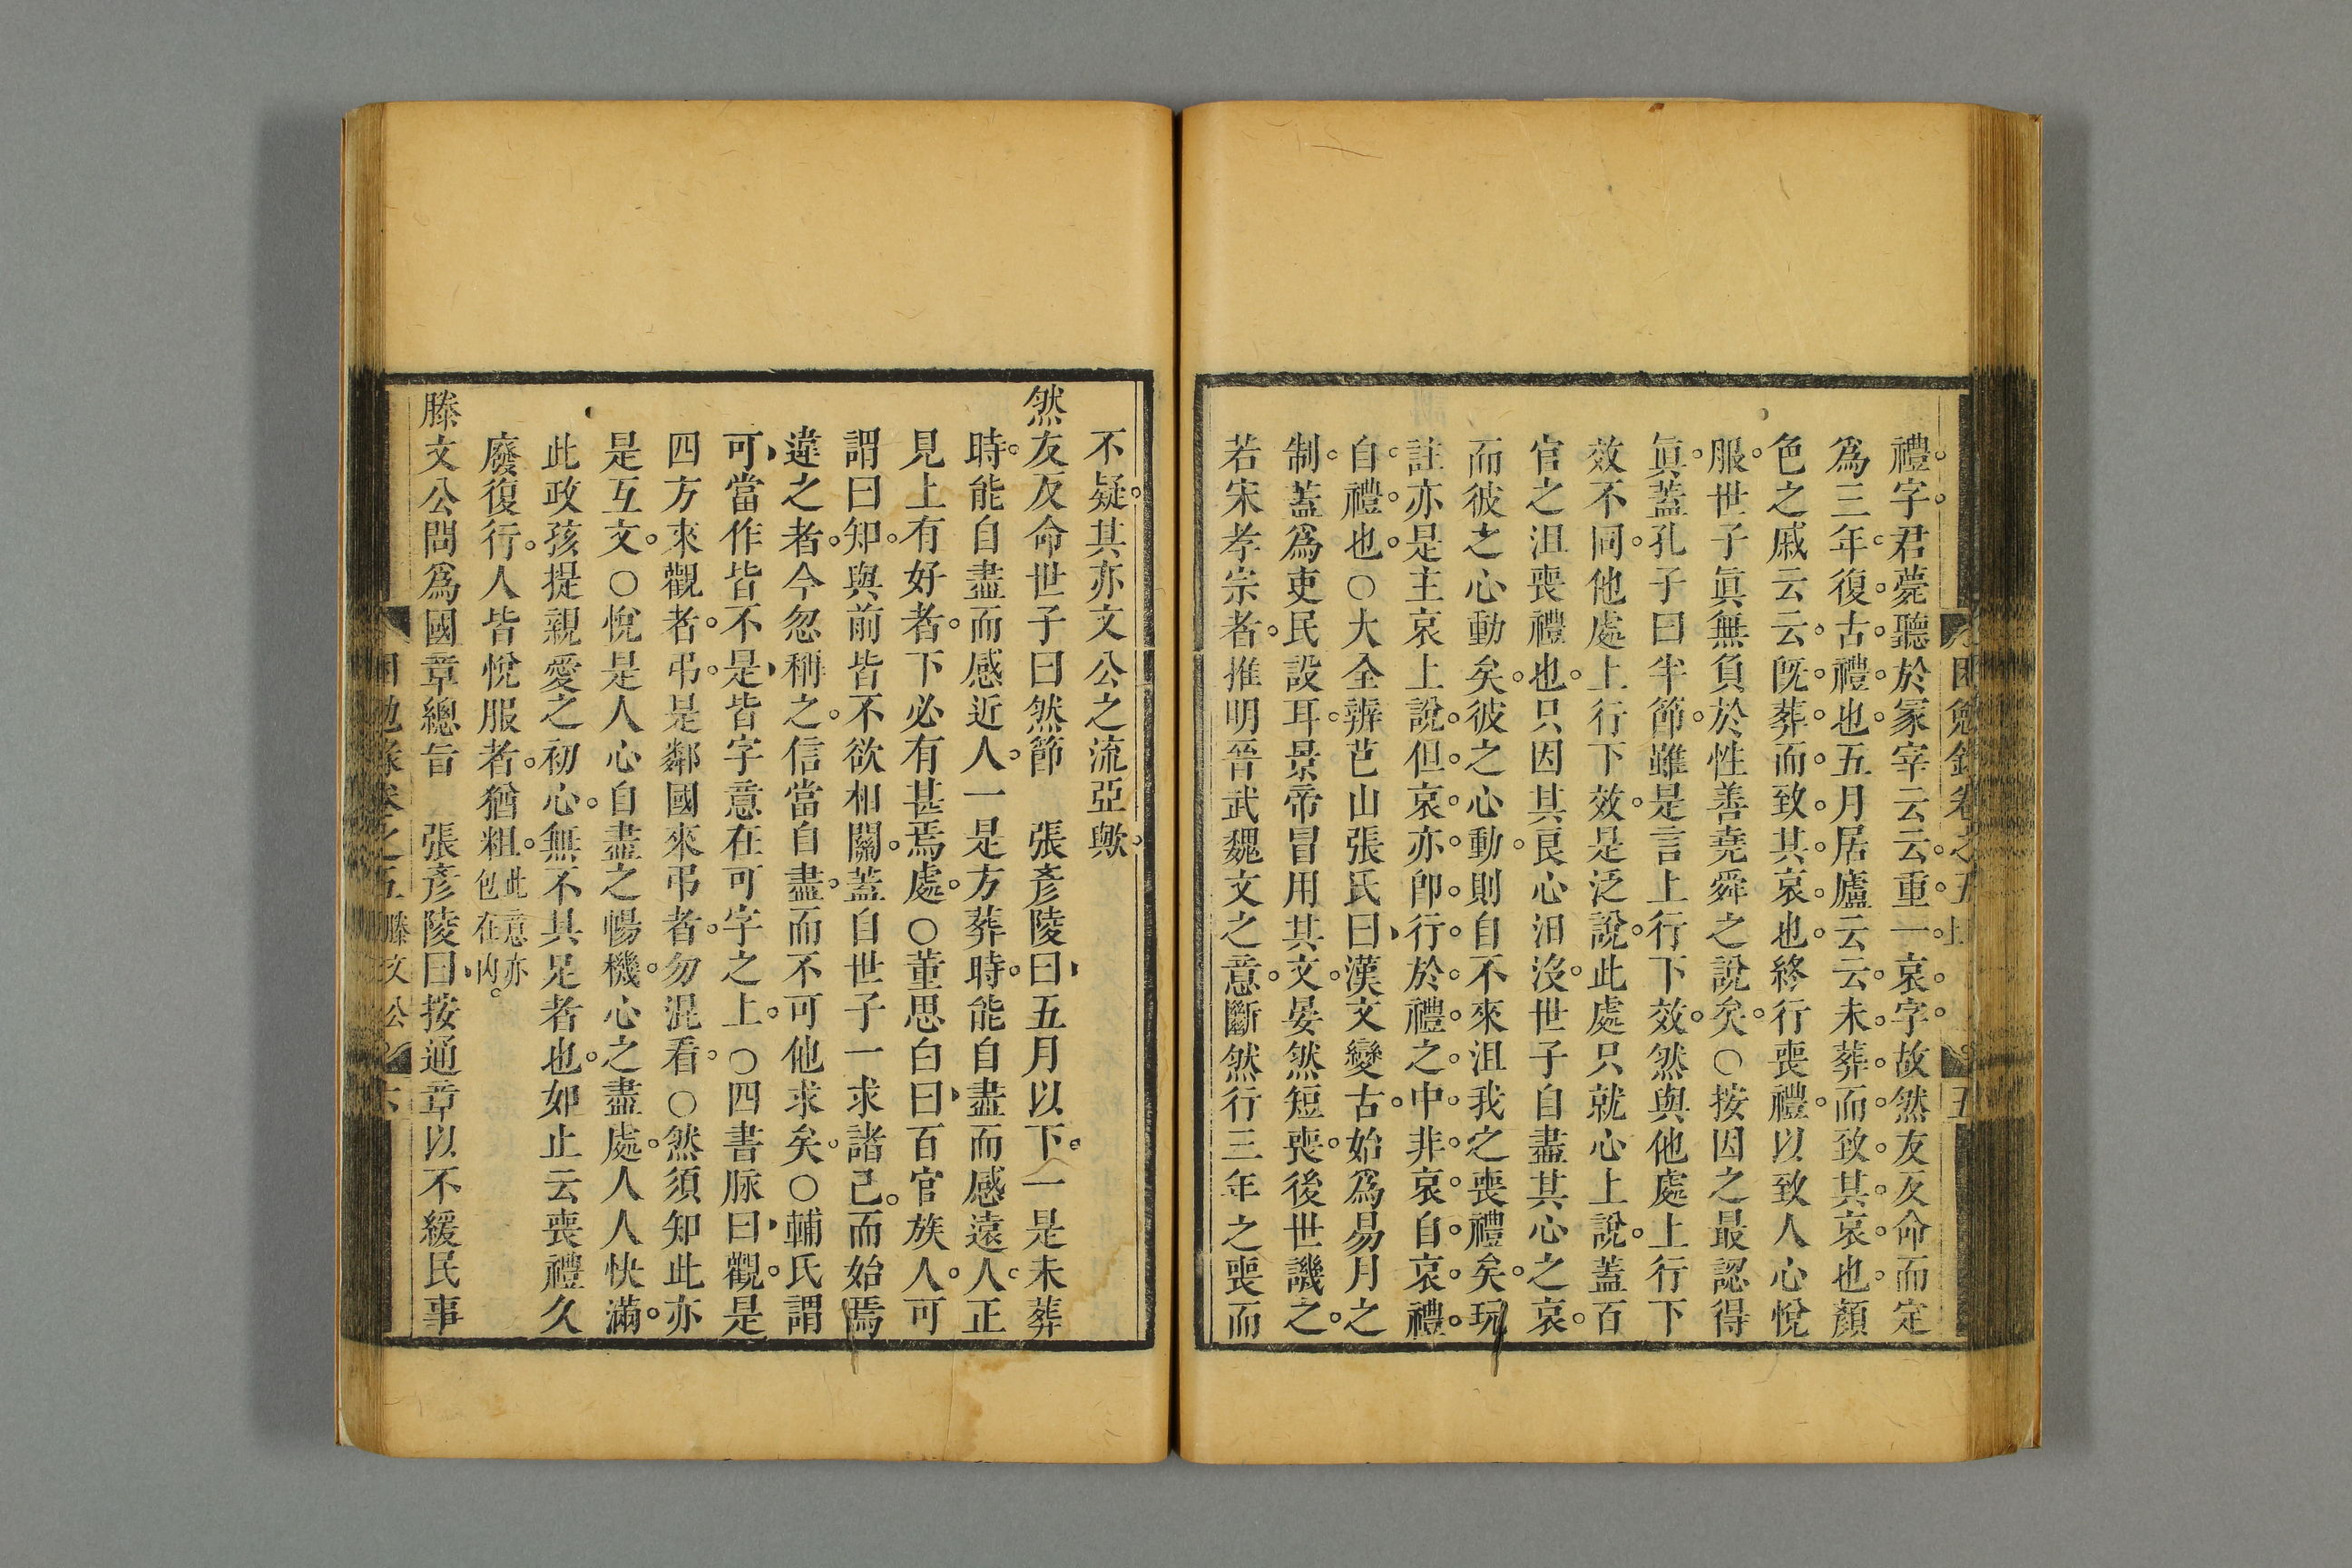 困勉錄卷之五上 五
禮字君薨聽於冢宰云云重一哀字故然友反命而定
爲三年復古禮也五月居廬云云未葬而致其哀也顏
色之戚云云旣葬而致其哀也終行喪禮以致人心悅
服世子眞無負於性善堯舜之說矣○按因之最認得
眞蓋孔子曰半節雖是言上行下效然與他處上行下
效不同他處上行下效是泛說此處只就心上說蓋百
官之沮喪禮也只因其良心汨沒世子自盡其心之哀
而彼之心動矣彼之心動則自不來沮我之喪禮矣玩
註亦是主哀上說但哀亦卽行於禮之中非哀自哀禮
自禮也○大全辨芑山張氏曰漢文變古始爲易月之
制蓋爲吏民設耳景帝冒用其文晏然短喪後世譏之
若宋孝宗者推明晉武魏文之意斷然行三年之喪而
不疑其亦文公之流亞歟
然友反命世子曰然節 張彥陵曰五月以下一是未葬
時能自盡而感近人一是方葬時能自盡而感遠人正
見上有好者下必有甚焉處○董思白曰百官族人可
謂曰知與前皆不欲相關蓋自世子一求諸己而始焉
違之者今忽稱之信當自盡而不可他求矣○輔氏謂
可當作皆不是皆字意在可字之上○四書脉曰觀是
四方來觀者弔是鄰國來弔者勿混看○然須知此亦
是互文○悅是人心自盡之暢機心之盡處人人快滿
此政孩提親愛之初心無不具足者也如止云喪禮久
廢復行人皆悅服者猶粗此意亦包在內
滕文公問爲國章總旨 張彥陵曰按通章以不緩民事
困勉錄卷之五 滕文公 六